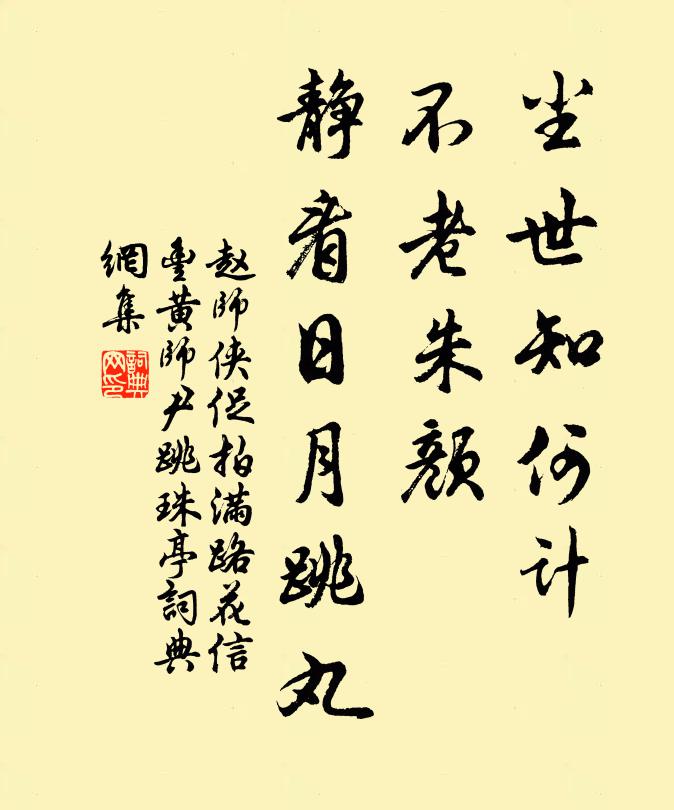 尘世知何计
不老朱颜
静看日月跳丸
赵师侠促拍满路花信
丰黄师尹跳珠亭詞典
網集
詞典
网印